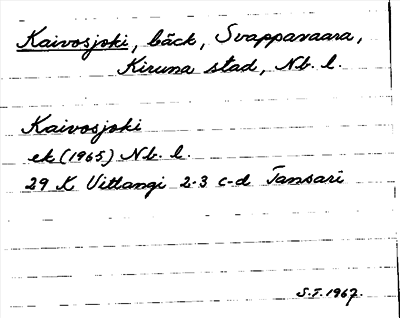 Kaivosjoki, bäck, Svappavaara,
Kiruna stad, Nb. l.
Kaivosjoki
ek (1965) Nb. l.
29 K Vittangi 2-3 c-d Tansari
S.T. 1967.